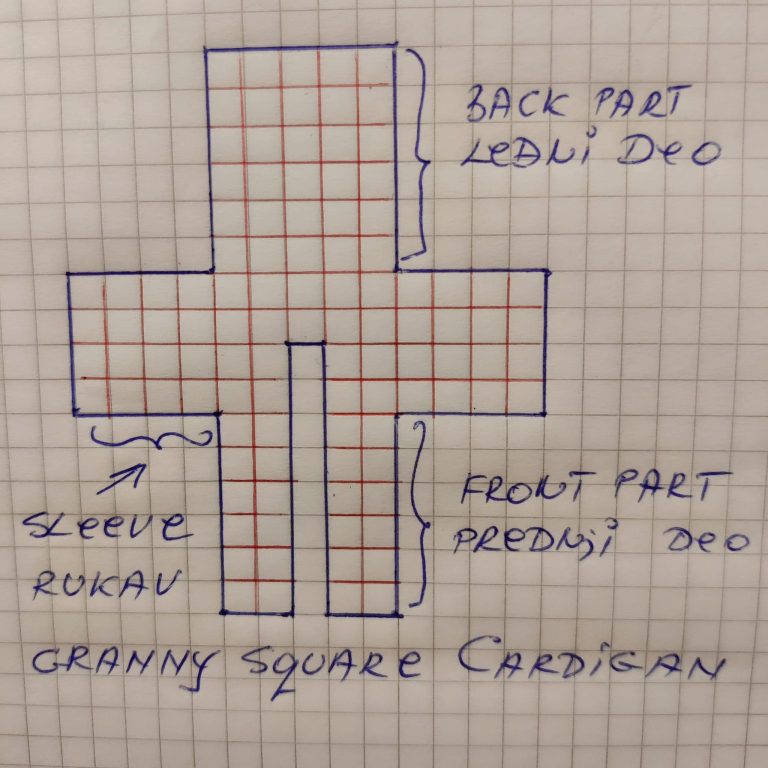 BACK PART
LeDNi Deo
FRONT PART
PREDNji Deo
SLeeVe
RUKAV
GRANNY SQUARe CARDiGAN